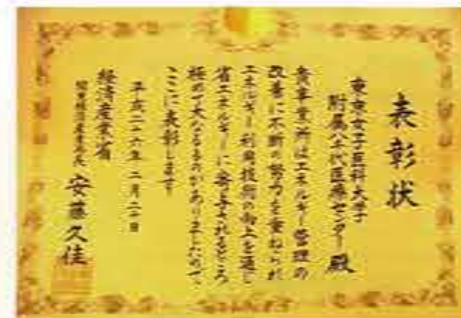 表彰状
東京女子医科大学
附属八千代医療センター 殿
貴事業所はエネルギー管理の
改善に不断の努力を重ねられ
エネルギー利用技術の向上を通じ
省エネルギーに寄与されるところ
極めて大なるものがありましたので
ここに表彰します
平成二十六年 二月二十日
経済産業省
関東経済産業局長 安藤久佳